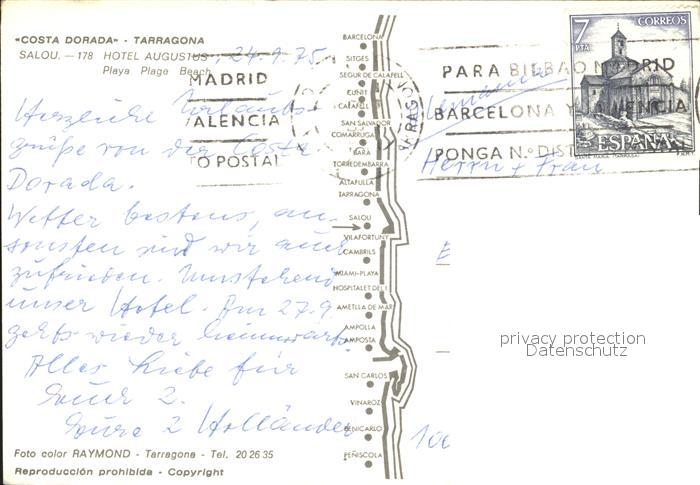 «COSTA DORADA» - TARRAGONA
SALOU. — 178 HOTEL AUGUSTUS
Playa Plage Beach
, 24.9.75
Herzliche Urlaubs-
grüße von der Costa
Dorada.
Wetter bestens, an-
sonsten sind wir auch
zufrieden. Umstehend
unser Hotel. Am 27.9.
geht's wieder heimwärts.
Alles Liebe für
Euch 2.
Eure 2 Holländer
Foto color RAYMOND - Tarragona - Tel. 20 26 35
Reproducción prohibida - Copyright
MADRID
VALENCIA
O POSTAL
BARCELONA
SITGES
SEGUR DE CALAFELL
CUNIT
CALAFELL
SAN SALVADOR
COMARRUGA
BARA
TORREDEMBARRA
ALTAFULLA
TARRAGONA
SALOU
VILAFORTUNY
CAMBRILS
MIAMI-PLAYA
HOSPITALET DEL I.
AMETLLA DE MAR
AMPOLLA
AMPOSTA
SAN CARLOS
VINAROZ
BENICARLO
PEÑISCOLA
TARRAGO
PARA BILBAO MADRID
BARCELONA Y VALENCIA
PONGA N.º DIST
7
PTA
CORREOS
ESPAÑA
Herrn + Frau
E
100
privacy protection
Datenschutz